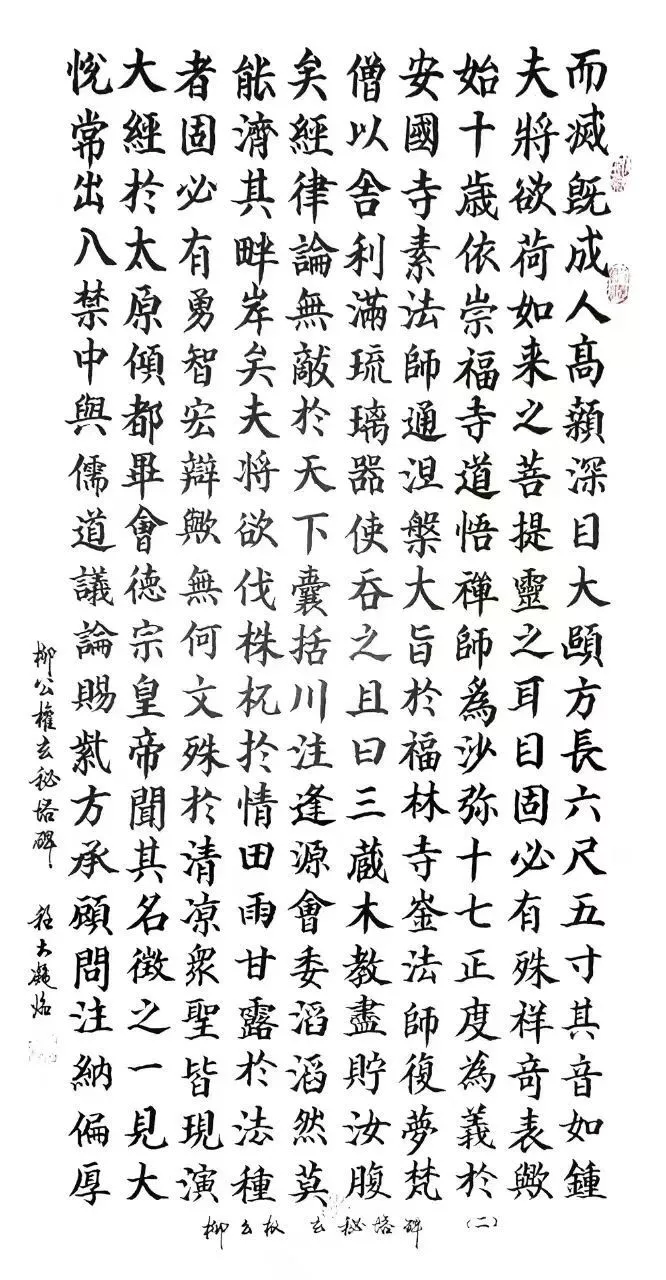 而滅既成人高顙深目大頤方長六尺五寸其音如鍾
夫將欲荷如来之菩提靈之耳目固必有殊祥竒表歟
始十歳依崇福寺道悟禪師爲沙弥十七正度為義於
安國寺素法師通涅槃大旨於福林寺崟法師復夢梵
僧以舎利滿琉璃器使吞之且曰三蔵木教盡貯汝腹
矣經律論無敵於天下囊括川注逢源會委滔滔然莫
能濟其畔岸矣夫将欲伐株杌扵情田雨甘露扵法種
者固必有勇智宏辯歟無何文殊於清凉衆聖皆現演
大經於太原傾都畢會德宗皇帝聞其名徴之一見大
悅常出入禁中與儒道議論賜紫方承顧問注納偏厚
柳公權玄秘塔碑
柳公权 玄秘塔碑 (二)